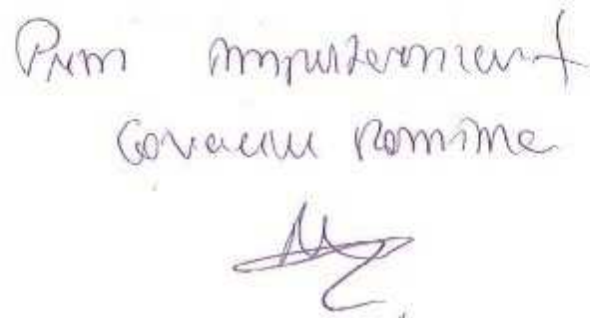 Prin împuternicit
Covaciu Romina